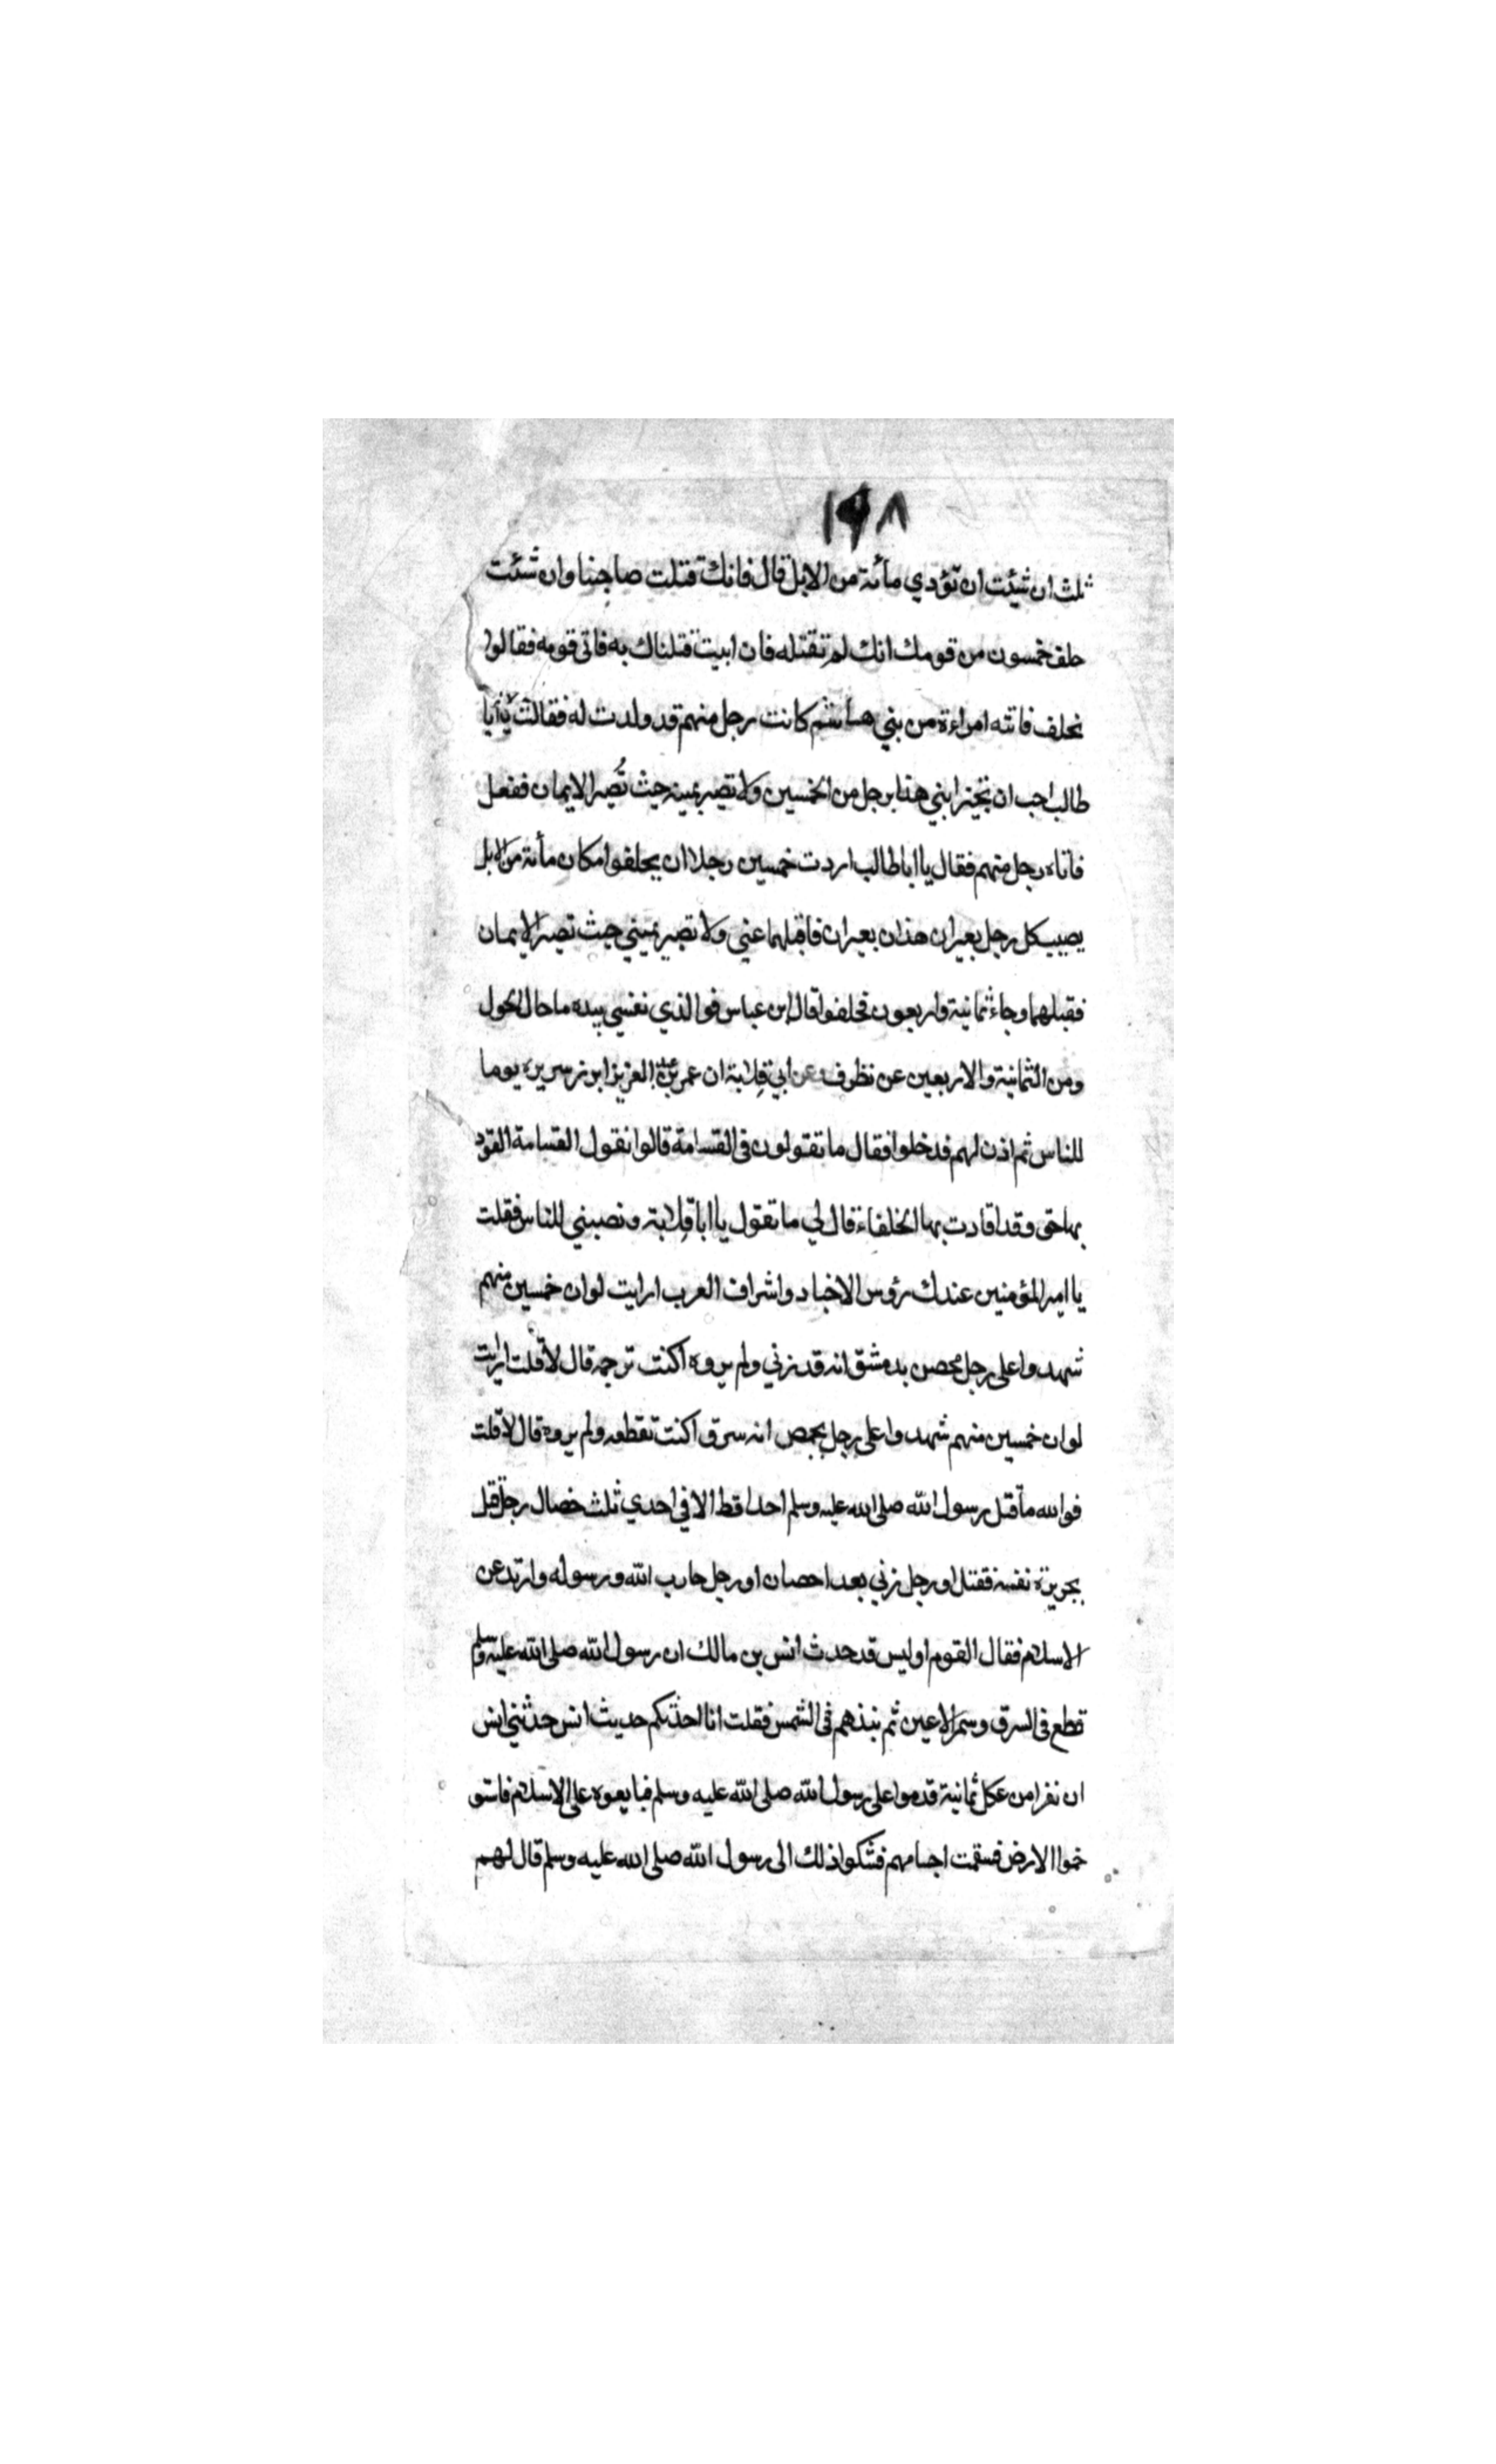 ١٩٨
ثلث ان شئت ان تؤدي مائة من الابل قال فانك قتلت صاحبنا وان شئت
حلف خمسون من قومك انك لم تقتله فان ابيت قتلناك به فاتى قومه فقالوا
نحلف فاتته امراءة من بني هاشم كانت رجل منهم قد ولدت له فقالت يا ابا
طالب احب ان تجيز ابني هذا برجل من الخمسين ولا تصبر يمينه حيث تُصبر الايمان ففعل
فاتاه رجل منهم فقال يا ابا طالب اردت خمسين رجلا ان يحلفوا مكان مأئة من الابل
يصيب كل رجل بعيران هذان بعيران فاقبلهما عني ولا تصبر يميني حيث تصبر الايمان
فقبلهما وجاء ثمانية واربعون فحلفوا قال ابن عباس فوالذي نفسي بيده ما حال الحول
ومن الثمانية والاربعين عن تطرف عن ابي قِلابة ان عمر بن العزيز ابرز سريره يوما
للناس ثم اذن لهم فدخلوا فقال ما تقولون في القسامة قالوا نقول القسامة القود
بها حق وقد اقادت بها الخلفاء قال لي ما تقول يا ابا قِلابة ونصبني للناس فقلت
يا امير المؤمنين عندك رؤس الاخباد واشراف العرب ارايت لو ان خمسين منهم
شهدوا على رجل محصن بدمشق انه قد زني ولم يروه اكنت ترجمه قال لا قلت ارايت
لو ان خمسين منهم شهدوا على رجل بحمص انه سرق اكنت تقطعه ولم يروه قال لا قلت
فوالله ما قتل رسول الله صلى الله عليه وسلم احدا قط الا في احدي ثلث خصال رجل قتل
بجريرة نفسه فقتل او رجل زني بعد احصان او رجل حارب الله ورسوله وارتد عن
الاسلام فقال القوم او ليس قد حدث انس بن مالك ان رسول الله صلى الله عليه وسلم
قطع في السرق وسمر الاعين ثم نبذهم في الشمس فقلت انا احدثكم حديث انس حدثني انس
ان نفرا من عكل ثمانية قدموا على رسول الله صلى الله عليه وسلم فبايعوه على الاسلام فاستو
خموا الارض فسقمت اجسامهم فشكوا ذلك الى رسول الله صلى الله عليه وسلم قال لهم